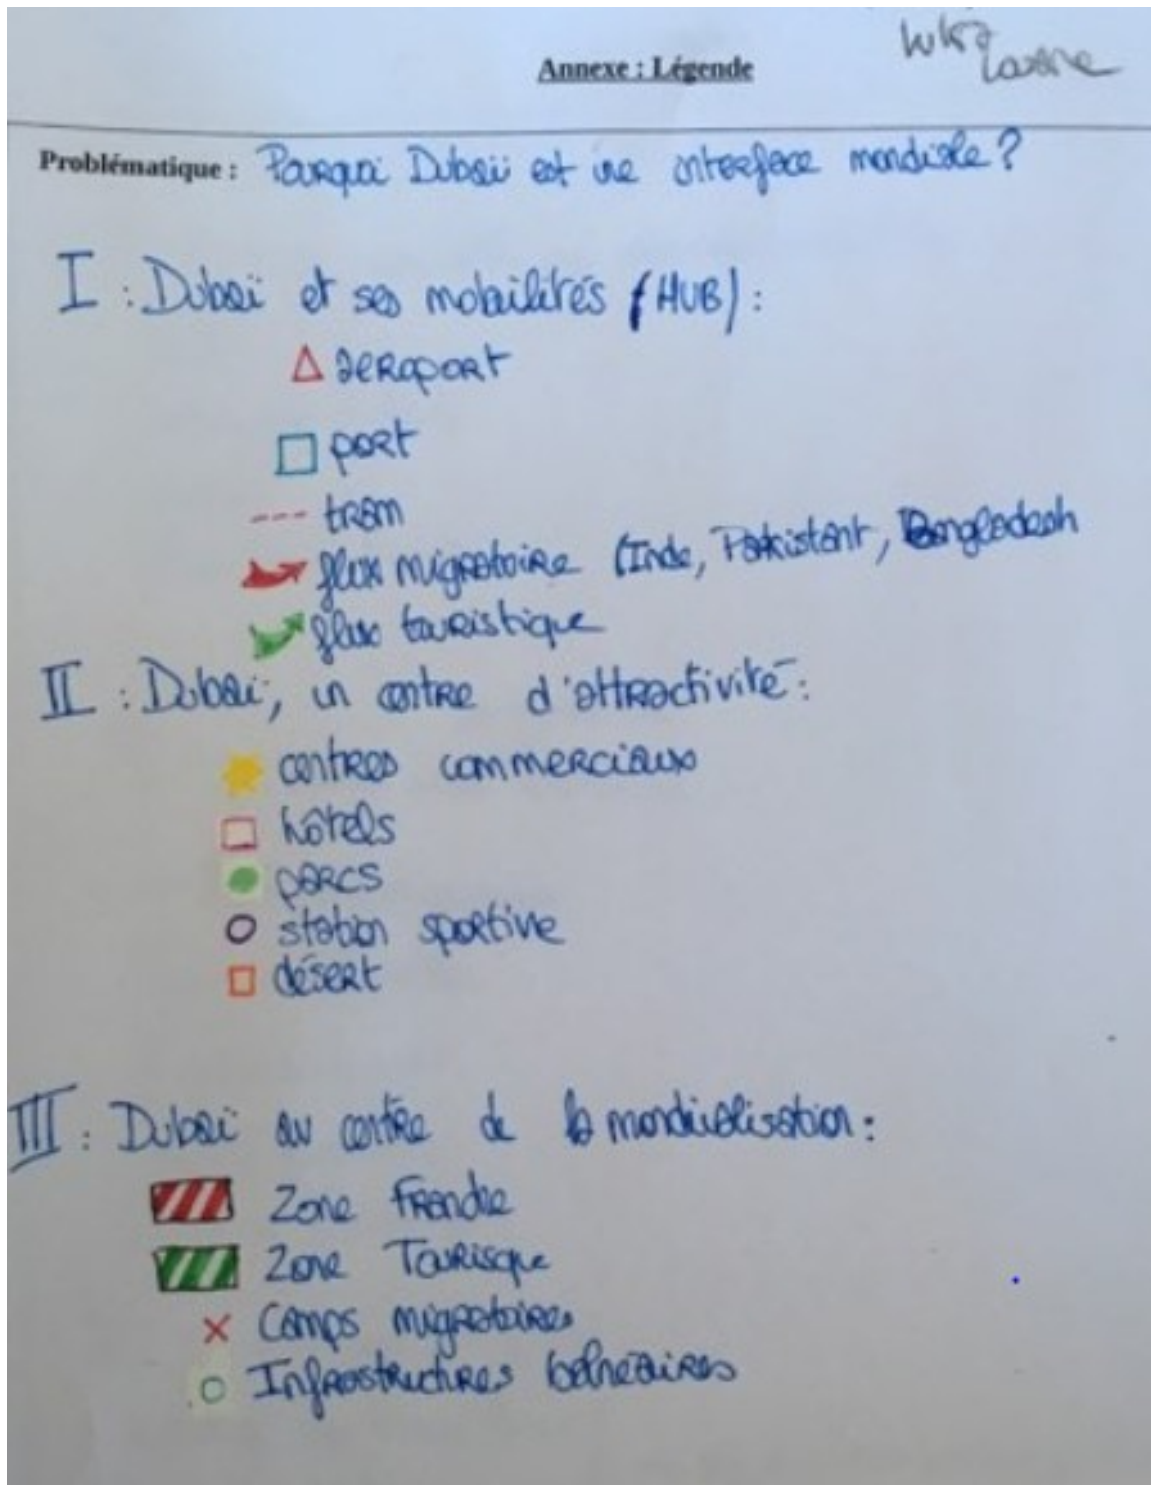 Annexe : Légende
Problématique : Pourquoi Dubaï est une interface mondiale ?
I : Dubaï et ses mobilités (HUB) :
aeroport
port
tram
flux migratoire (Inde, Pakistant, Bangladesh
flux touristique
II : Dubaï, un centre d'attractivité :
centres commerciaux
hôtels
parcs
station sportive
désert
III : Dubaï au centre de la mondialisation :
Zone Franche
Zone Tourisque
Camps migratoires
Infrastructures balnéaires